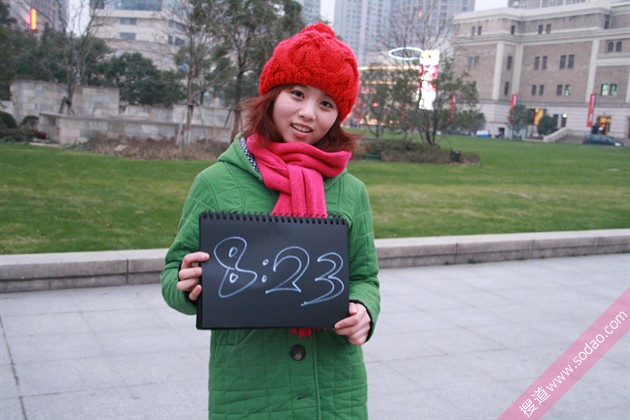 8:23
搜道www.sodao.com